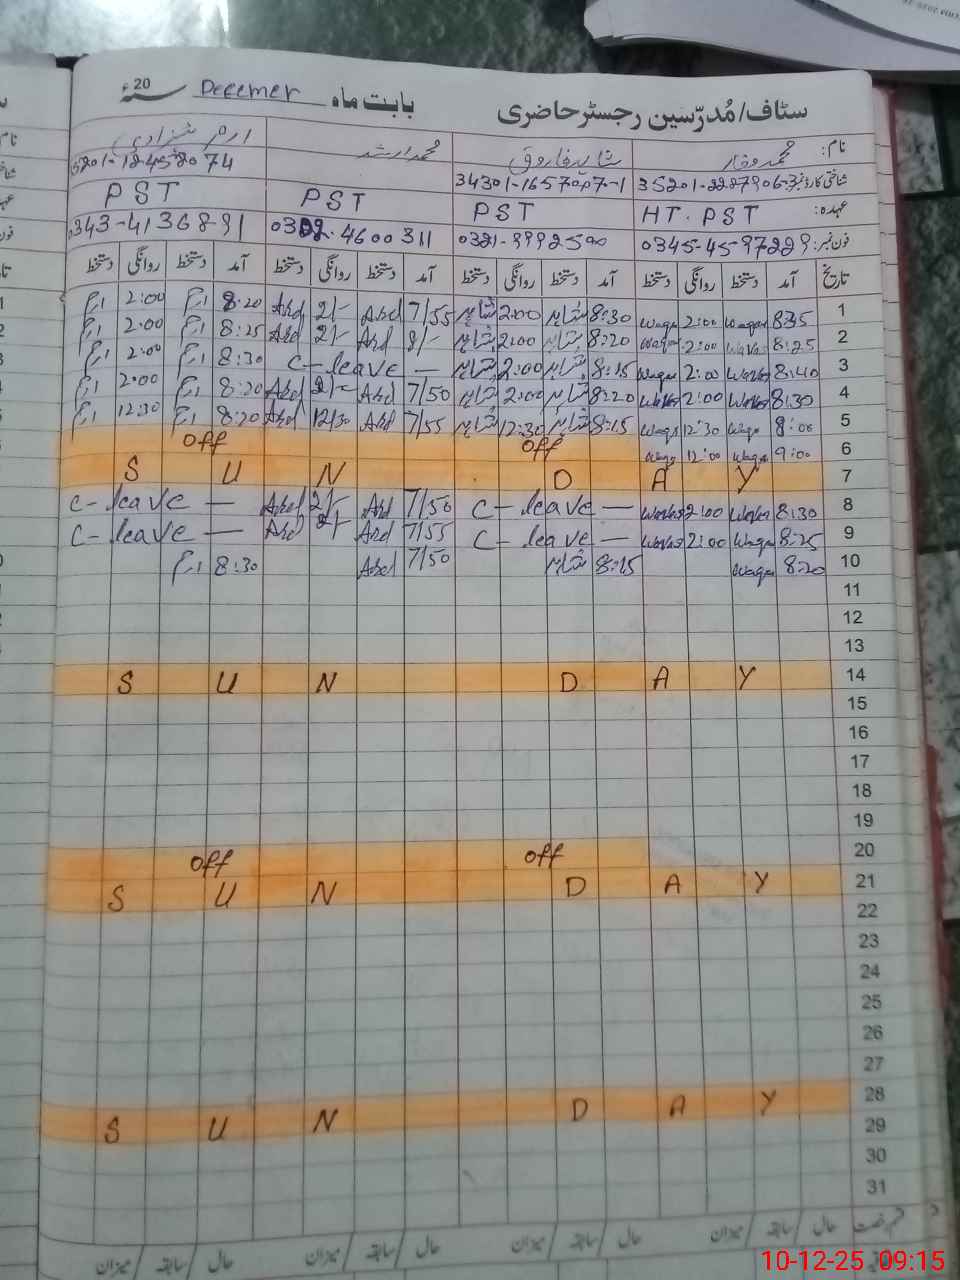 سٹاف/مُدرّسین رجسٹر حاضری بابت ماہ Decemer سنہ 20ء
نام: محمد وقار محمد ارشد ارم شہزادی
شناختی کارڈ نمبر
عہدہ: HT. PST PST PST PST
فون نمبر: 0345-45-97229 0321-9992500 0343-4136891
تاریخ آمد دستخط روانگی دستخط آمد دستخط روانگی دستخط آمد دستخط روانگی دستخط آمد دستخط روانگی دستخط
1 8:35 Waqar 2:00 Waqar 8:30 2:00 7/55 Asd 2/- Asd 8:20 2:00
2 8:25 Waqar 2:00 Waqar 8:20 2:00 8/- Asd 2/- Asd 8:25 2:00
3 8:40 Waqar 2:00 Waqar 8:15 2:00 C-leave — 8:30 2:00
4 8:30 Waqar 2:00 Waqar 8:20 2:00 7/50 Asd 2/- Asd 8:20 2:00
5 8:00 Waqar 12:30 Waqar 8:15 12:30 7/55 Asd 12/30 Asd 8:20 12:30
6 9:00 Waqar 12:00 Waqar off off
7 S U N D A Y
8 8:30 Waqar 2:00 Waqar C-leave — 7/50 Asd 2/- Asd C-leave —
9 8:25 Waqar 2:00 Waqar C-leave — 7/55 Asd 2/- Asd C-leave —
10 8:20 Waqar 8:15 7/50 Asd 8:30
11
12
13
14 S U N D A Y
15
16
17
18
19
20 off off
21 S U N D A Y
22
23
24
25
26
27
28 S U N D A Y
29
30
31
حال سابقہ میزان حال سابقہ میزان حال سابقہ میزان حال سابقہ میزان
10-12-25 09:15